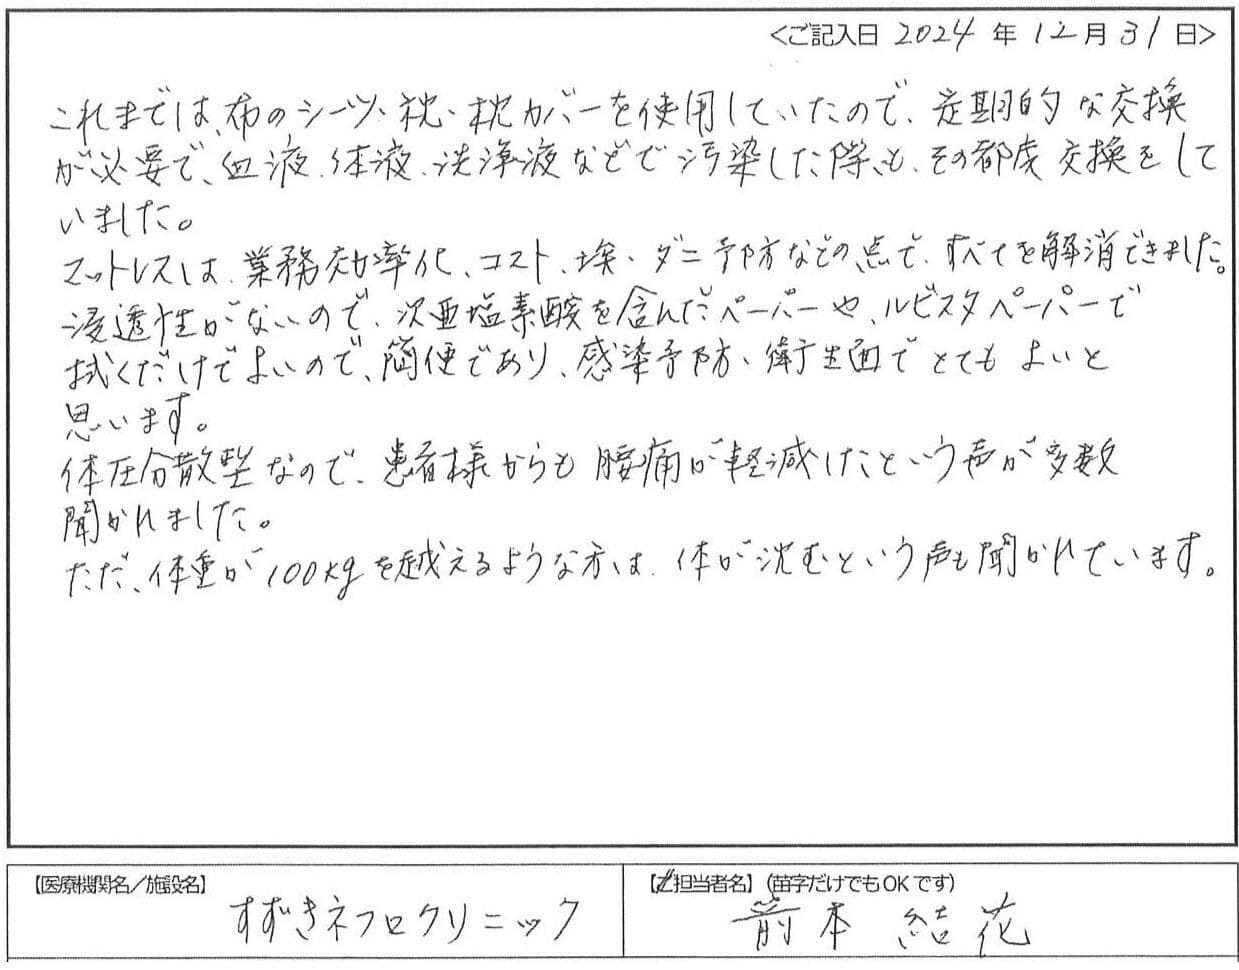 <ご記入日 2024 年 12 月 31 日>
これまでは、布のシーツ・枕・枕カバーを使用していたので、定期的な交換
が必要で、血液、体液、洗浄液などで汚染した際も、その都度交換をして
いました。
マットレスは、業務効率化、コスト、埃、ダニ予防などの点で、すべてを解消できました。
浸透性がないので、次亜塩素酸を含んだペーパーや、ルビスタペーパーで
拭くだけでよいので、簡便であり、感染予防、衛生面でとてもよいと
思います。
体圧分散型なので、患者様からも腰痛が軽減したという声が多数
聞かれました。
ただ、体重が100kgを越えるような方は、体が沈むという声も聞かれています。
【医療機関名／施設名】
すずきネフロクリニック
【ご担当者名】(苗字だけでもOKです)
前本 結花